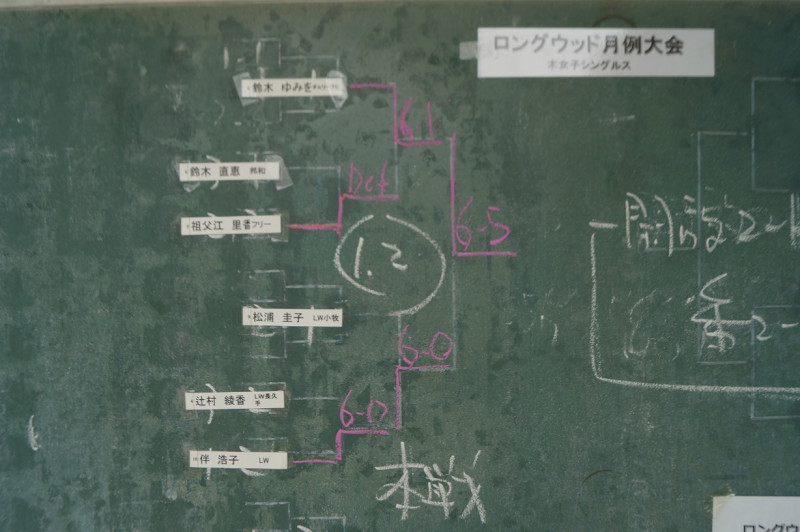 ロングウッド月例大会
木女子シングルス
鈴木 ゆみを
6 1
鈴木 直恵 邦和
Def
祖父江 里香 フリー
6-5
1.2
松浦 圭子 LW小牧
6-0
辻村 綾香 LW長久手
6-0
伴 浩子 LW
本戦
ロングウ